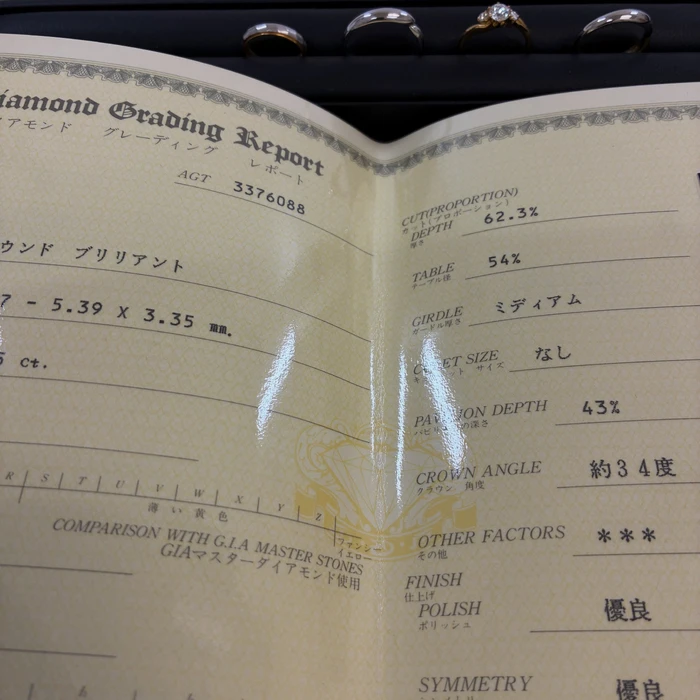 Diamond Grading Report
イアモンド グレーディング レポート
AGT 3376088
ウンド ブリリアント
7 - 5.39 X 3.35 mm.
5 ct.
R S T U V W X Y Z
薄い黄色
ファンシー
イエロー
COMPARISON WITH G.I.A MASTER STONES
GIAマスターダイアモンド使用
CUT(PROPORTION)
カット(プロポーション)
DEPTH 62.3%
厚さ
TABLE 54%
テーブル径
GIRDLE ミディアム
ガードル厚さ
SIZE なし
サイズ
DEPTH 43%
の深さ
CROWN ANGLE 約34度
クラウン 角度
OTHER FACTORS ***
その他
FINISH
仕上げ
POLISH 優良
ポリッシュ
SYMMETRY 優良